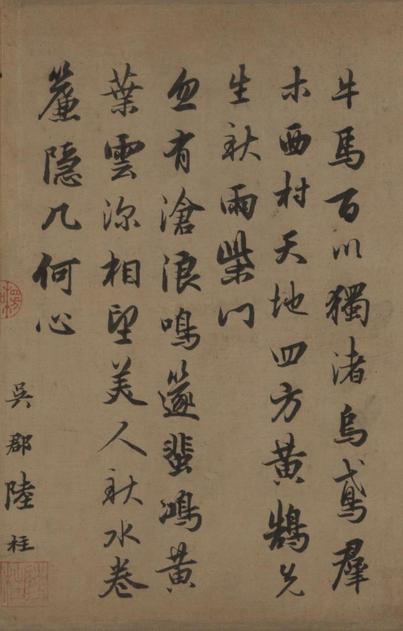 牛馬百川獨渚烏鳶羣
木西村天地四方黃鵠先
生秋雨柴门
忽有滄浪鳴篴蜚鴻黃
葉雲深相望美人秋水卷
簾隐几何心
吳郡陸